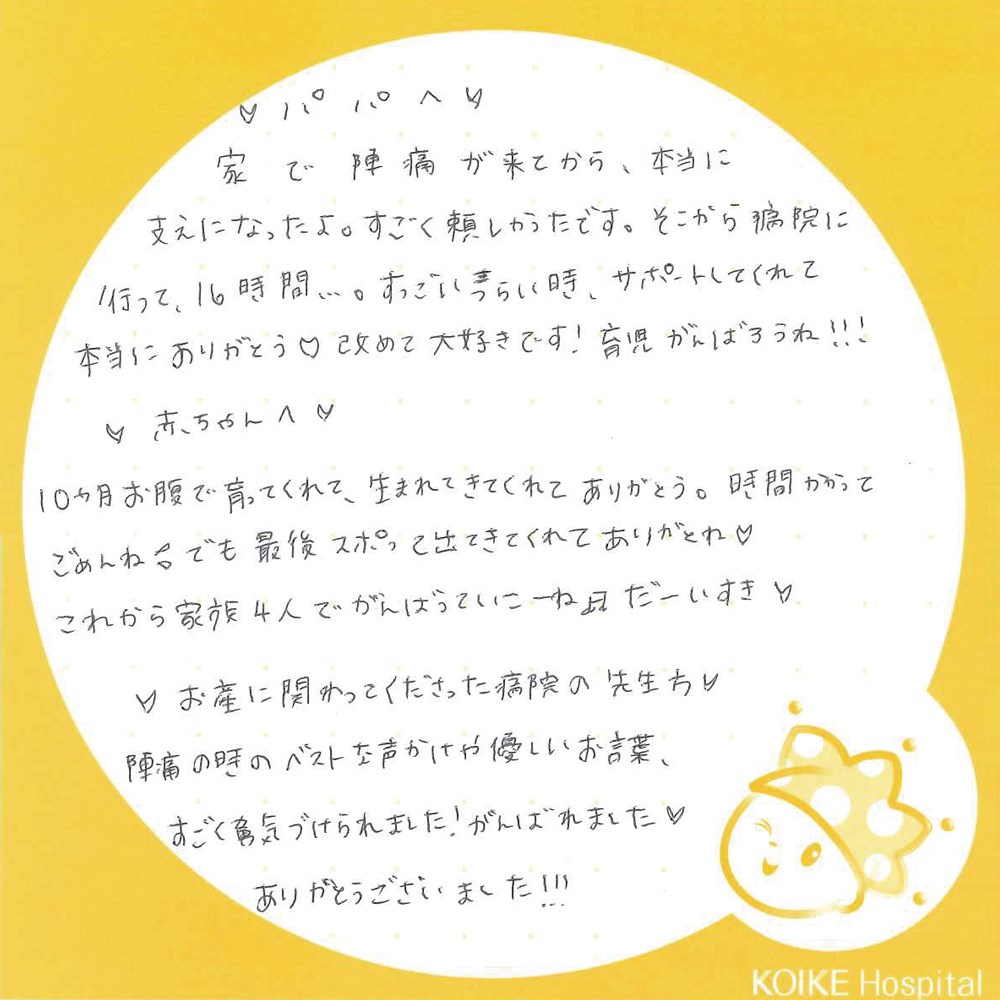 ♡ パパへ ♡
家で陣痛が来てから、本当に
支えになったよ。すごく頼しかったです。そこから病院に
行って、16時間…。すっごい辛らい時、サポートしてくれて
本当にありがとう♡改めて大好きです!育児がんばろうね!!!
♡ 赤ちゃんへ ♡
10ヶ月お腹で育ってくれて、生まれてきてくれてありがとう。時間かかって
ごめんね でも最後スポって出てきてくれてありがとね♡
これから家族4人でがんばっていこーね♫だーいすき♡
♡ お産に関わってくださった病院の先生方♡
陣痛の時のベストな声かけや優しいお言葉、
すごく勇気づけられました!がんばれました♡
ありがとうございました!!!
KOIKE Hospital